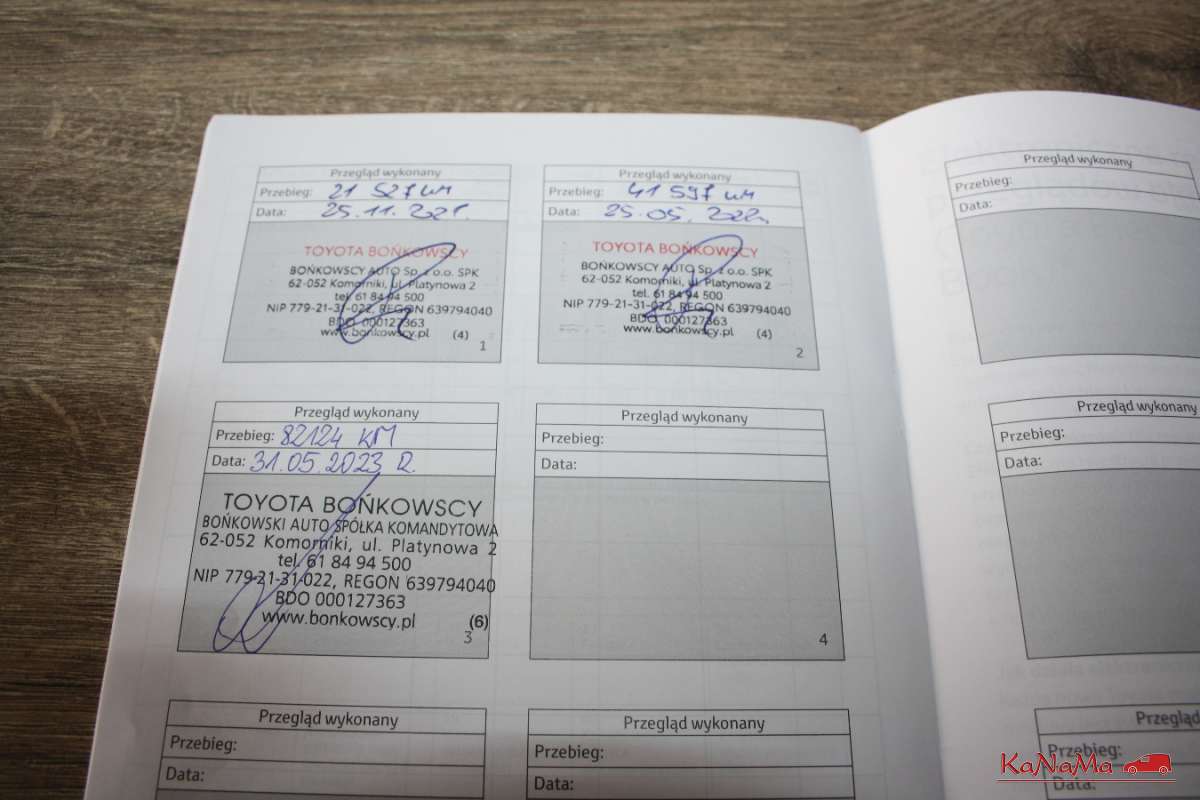 Przegląd wykonany
Przebieg: 21 527 km
Data: 25.11.2021.
TOYOTA BOŃKOWSCY
BOŃKOWSCY AUTO Sp. z o.o. SPK
62-052 Komorniki, ul. Platynowa 2
tel. 61 84 94 500
NIP 779-21-31-022, REGON 639794040
BDO 000127363
www.bonkowscy.pl (4)
1
Przegląd wykonany
Przebieg: 41 597 km
Data: 25.05.2022.
TOYOTA BOŃKOWSCY
BOŃKOWSCY AUTO Sp. z o.o. SPK
62-052 Komorniki, ul. Platynowa 2
tel. 61 84 94 500
NIP 779-21-31-022, REGON 639794040
BDO 000127363
www.bonkowscy.pl (4)
2
Przegląd wykonany
Przebieg: 82124 KM
Data: 31.05.2023 R.
TOYOTA BOŃKOWSCY
BOŃKOWSKI AUTO SPÓŁKA KOMANDYTOWA
62-052 Komorniki, ul. Platynowa 2
tel. 61 84 94 500
NIP 779-21-31-022, REGON 639794040
BDO 000127363
www.bonkowscy.pl (6)
3
Przegląd wykonany
Przebieg:
Data:
4
Przegląd wykonany
Przebieg:
Data:
Przegląd wykonany
Przebieg:
Data:
Przegląd wykonany
Przebieg:
Data:
Przegląd wykonany
Przebieg:
Data:
Przegląd
Przebieg:
Data:
KaNaMa